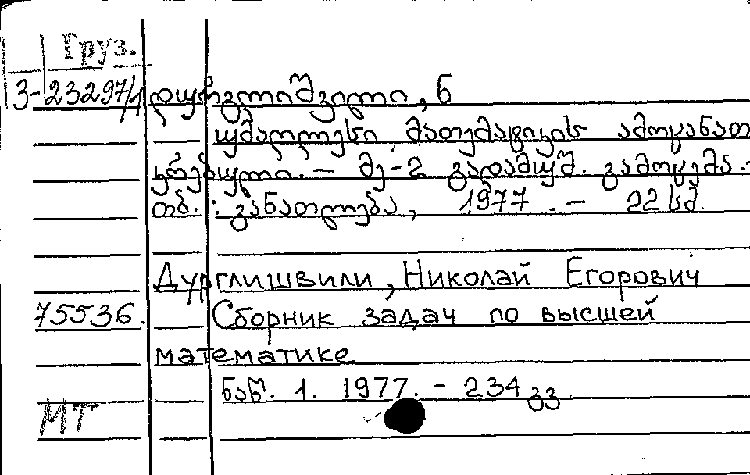 Груз.
3-23297/1 დურგლიშვილი, ნ
უმაღლესი მათემატიკის ამოცანათ
კრებული. – მე-2 გადამუშ. გამოცემა. –
თბ.: განათლება, 1977. – 22 სმ.
Дурглишвили, Николай Егорович
75536. Сборник задач по высшей
математике
ნაწ. 1. 1977. – 234 გვ
МТ